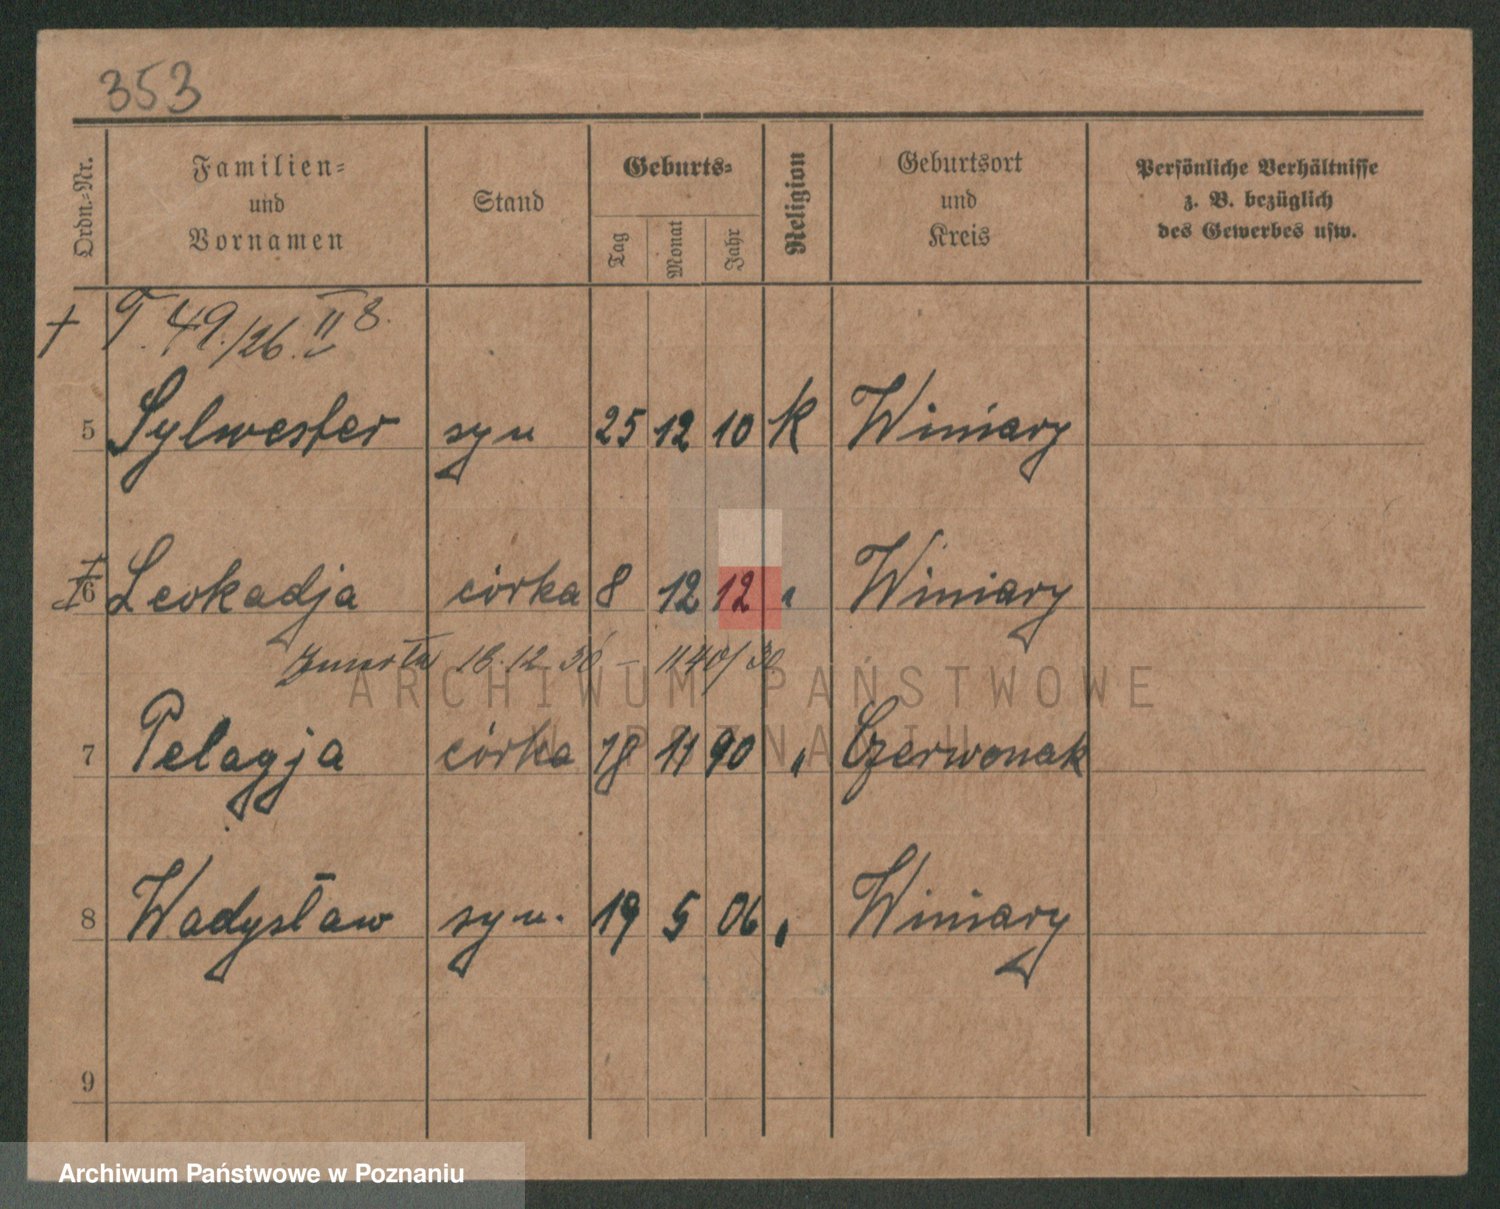 353
Ordn.-Nr.
Familien- und Vornamen
Stand
Geburts-
Tag
Monat
Jahr
Religion
Geburtsort und Kreis
Persönliche Verhältnisse z. B. bezüglich des Gewerbes usw.
† T. 49./26. II 8.
5 Sylwester syn 25 12 10 k Winiary
6 Leokadja córka 8 12 12 " Winiary
zmarła 18.12.30 – 1140/30
7 Pelagja córka 18 11 90 " Czerwonak
8 Wadysław syn. 19 5 06 " Winiary
9
ARCHIWUM PAŃSTWOWE
W POZNANIU
Archiwum Państwowe w Poznaniu